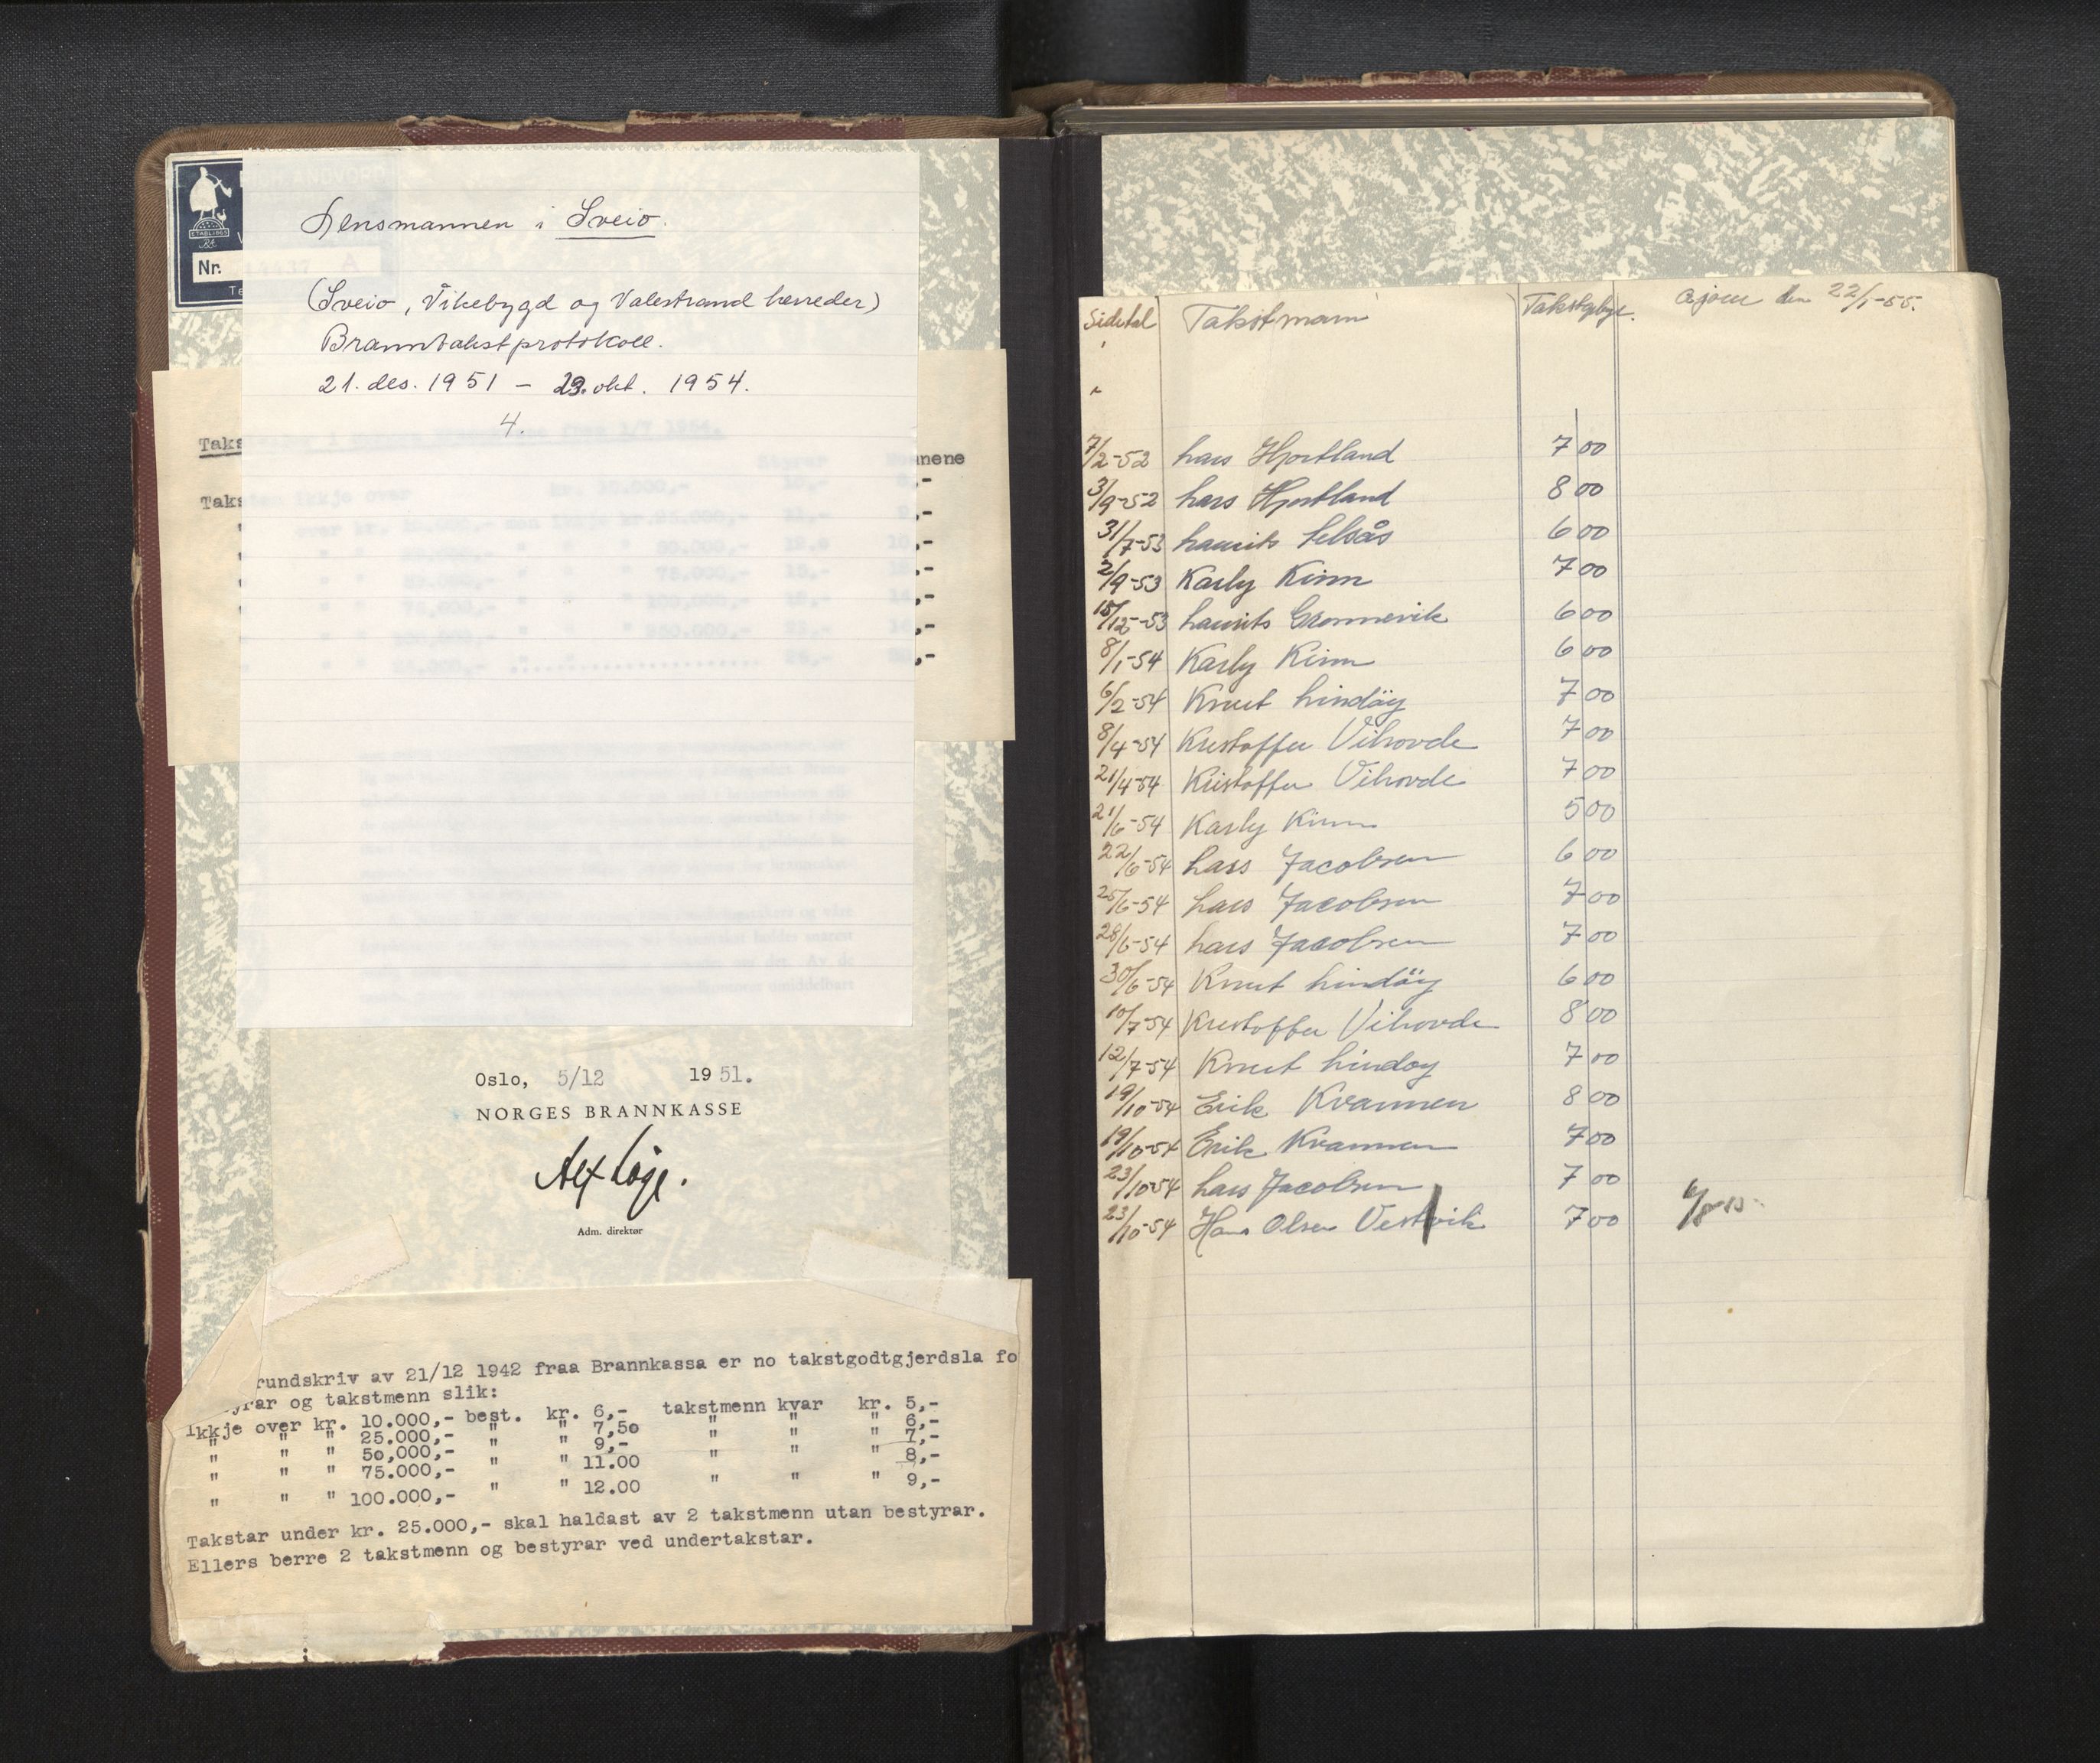 Lensmannen i Sveio.
(Sveio, Vikebygd og Valestrand herreder)
Branntakstprotokoll.
21. des. 1951 – 29. okt. 1954.
4.
Nr.
ETABL. 1865
Taks
nene
Taks
Oslo, 5/12 1951.
NORGES BRANNKASSE
Adm. direktør
rundskriv av 21/12 1942 fraa Brannkassa er no takstgodtgjerdsla fo
yrar og takstmenn slik:
Ikkje over kr. 10.000,- best. kr. 6,- takstmenn kvar kr. 5,-
" " " 25.000,- " " 7,50 " " " 6,-
" " " 50,000,- " " 9,- " " " 7,-
" " " 75.000,- " " 11.00 " " " 8,-
" " " 100.000,- " " 12.00 " " " 9,-
Takstar under kr. 25.000,- skal haldast av 2 takstmenn utan bestyrar.
Ellers berre 2 takstmenn og bestyrar ved undertakstar.
Sidetal Takstmann Takstgbyr. ajour den 22/1-55.
7/2-52 Lars Hjortland 7 00
3/9-52 Lars Hjortland 8 00
31/7-53 Laurits Selsås 6 00
2/9-53 Karly Kinn 7 00
15/12-53 Laurits Grønnevik 6 00
8/1-54 Karly Kinn 6 00
6/2-54 Knut Lindöy 7 00
8/4-54 Kristoffer Vihovde 7 00
21/4-54 Kristoffer Vihovde 7 00
21/6-54 Karly Kinn 5 00
22/6-54 Lars Jacobsen 6 00
25/6-54 Lars Jacobsen 7 00
28/6-54 Lars Jacobsen 7 00
30/6-54 Knut Lindöy 6 00
10/7-54 Kristoffer Vihovde 8 00
12/7-54 Knut Lindoy 7 00
19/10-54 Erik Kvammen 8 00
19/10-54 Erik Kvammen 7 00
23/10-54 Lars Jacobsen 7 00
23/10-54 Hans Olsen Vestvik 7 00